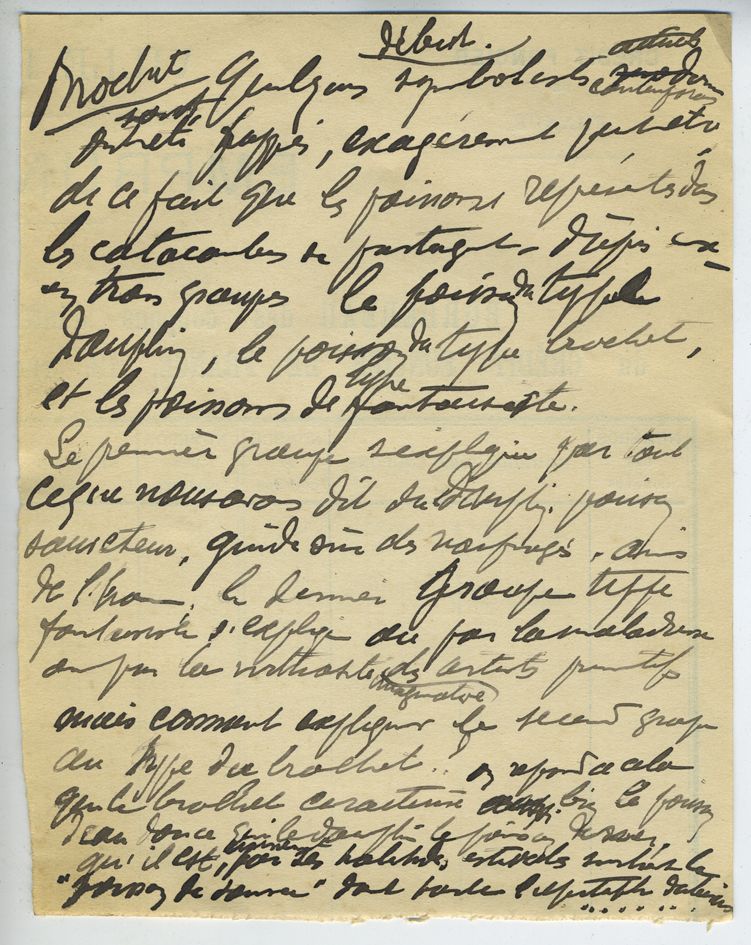 début.
Brochet Quelques symbolistes actuels
contemporains
sont
frappés, exagérément peut être
de ce fait que les poissons représentés dans
les catacombes se partagent d'après eux
en trois groupes le poisson du type
Dauphin, le poisson du type brochet,
et les poissons de type
fantaisiste.
Le premier groupe s'explique par tout
ce que nous avons dit du Dauphin, poisson
sauveteur, guide sûr des naufragés, amis
de l'homme, le dernier Groupe type
fantaisiste s'explique ou par la maladresse
ou par la des artistes primitifs
imaginative
mais comment expliquer le second groupe
du type du brochet. on répond à cela
que le brochet caractérise bien le poisson
d'eau douce le dauphin le poisson de mer,
qu'il est, par ses le
"poisson de source" dont parle l'épitaphe